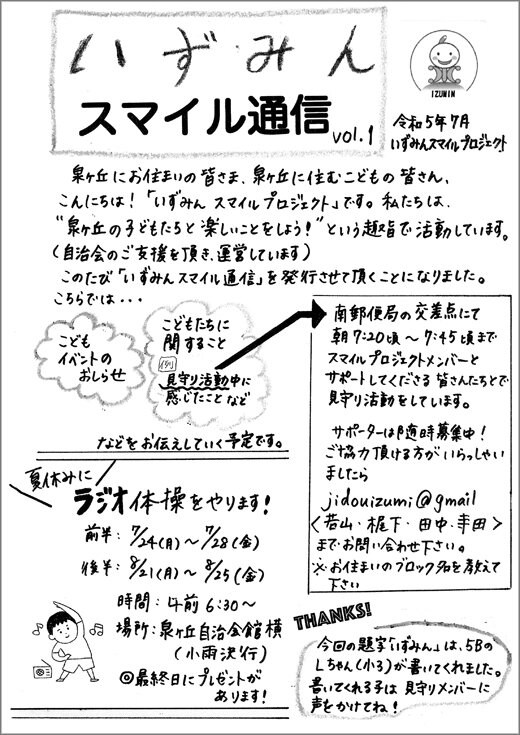 いずみん
スマイル通信 vol.1
IZUMIN
令和5年7月
いずみんスマイルプロジェクト
泉ヶ丘にお住まいの皆さま、泉ヶ丘に住むこどもの皆さん、
こんにちは!「いずみん スマイルプロジェクト」です。私たちは、
"泉ヶ丘の子どもたちと楽しいことをしよう!"という趣旨で活動しています。
(自治会のご支援を頂き、運営しています)
このたび「いずみんスマイル通信」を発行させて頂くことになりました。
こちらでは・・・
こども
イベントの
おしらせ
こどもたちに
関すること
例
見守り活動中に
感じたこと など
などをお伝えしていく予定です。
南郵便局の交差点にて
朝7:20頃〜7:45頃まで
スマイルプロジェクトメンバーと
サポートしてくださる皆さんたちとで
見守り活動をしています。
サポーターは随時募集中!
ご協力頂ける方がいらっしゃい
ましたら
jidouizumi@gmail
〈若山・梶下・田中・幸田〉
までお問い合わせ下さい。
※お住まいのブロック名を教えて
下さい
夏休みに
ラジオ体操をやります!
前半:7/24(月)〜7/28(金)
後半:8/21(月)〜8/25(金)
時間:午前6:30〜
場所:泉ヶ丘自治会館横
(小雨決行)
◎最終日にプレゼントが
あります!
THANKS!
今回の題字「いずみん」は、5Bの
Lちゃん(小3)が書いてくれました。
書いてくれる子は見守りメンバーに
声をかけてね!